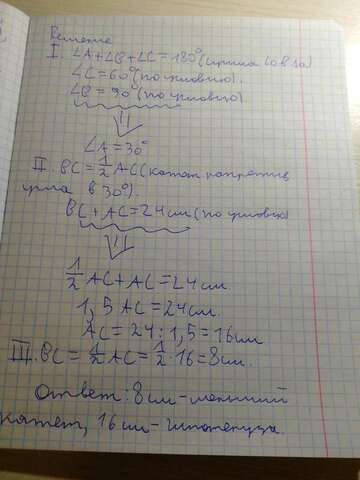 Решение
I. ∠A+∠B+∠C=180°(сумма ∠ов в Δа)
∠C=60°(по условию).
∠B=90°(по условию)
∠A=30°
II. BC=½AC(катет напротив
угла в 30°).
BC+AC=24см(по условию)
½AC+AC=24см.
1,5AC=24см.
AC=24:1,5=16см
III. BC=½AC=½·16=8см.
Ответ: 8см-меньший
катет, 16см-гипотенуза.